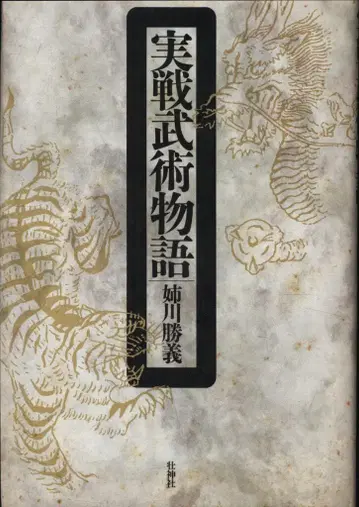 実戦武術物語
姉川勝義
壮神社